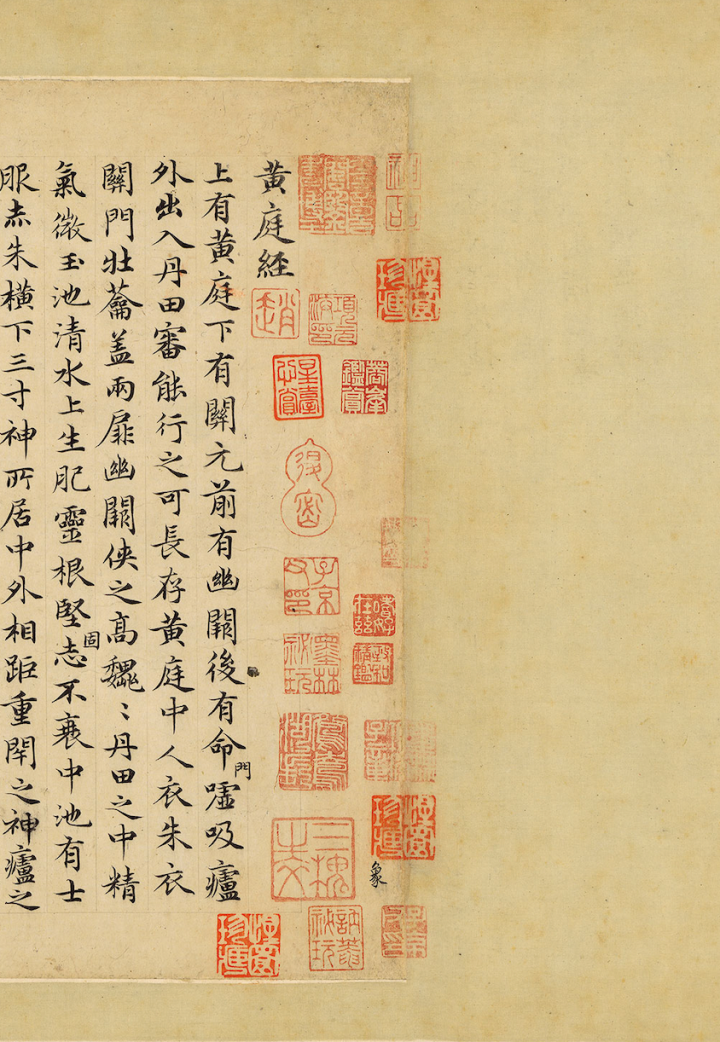 象
項元汴印
子京父印
墨林祕玩
黄庭經
上有黄庭下有關元前有幽闕後有命門噓吸廬
外出入丹田審能行之可長存黄庭中人衣朱衣
關門壯蘥蓋兩扉幽闕俠之高巍〻丹田之中精
氣微玉池清水上生肥靈根堅固志不衰中池有士
服赤朱橫下三寸神所居中外相距重閇之神廬之